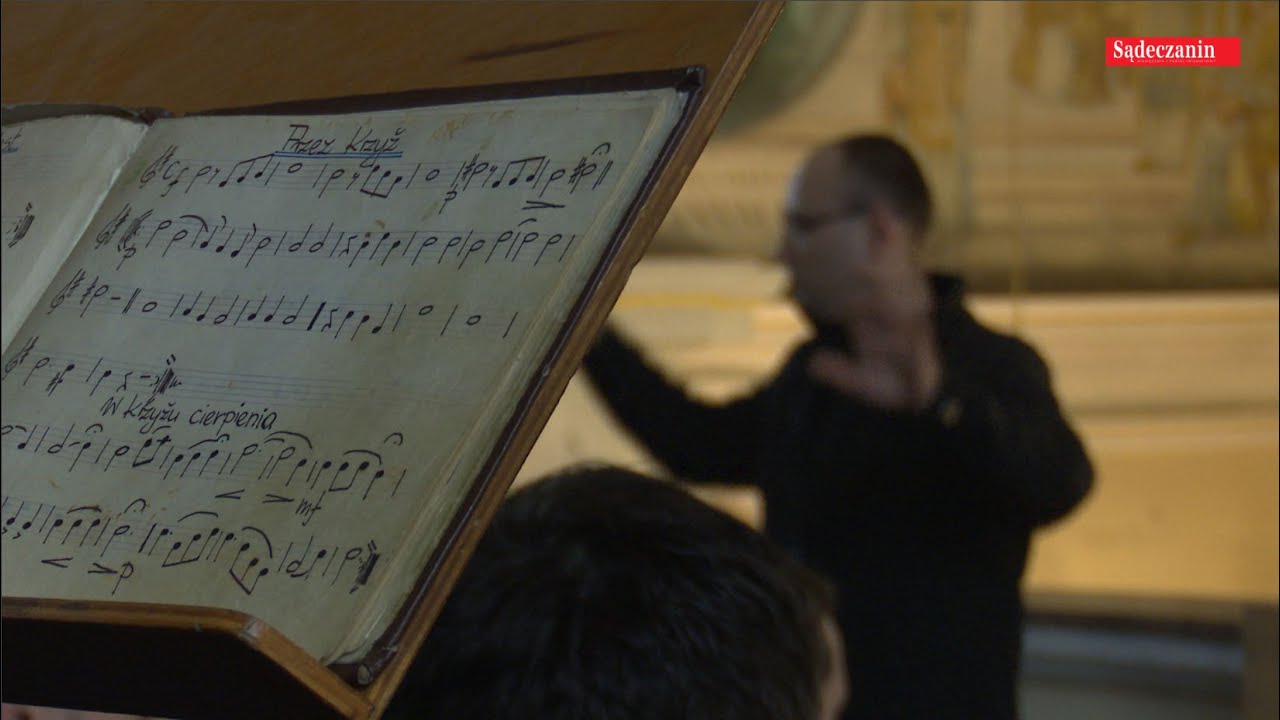 Sądeczanin
Przez Krzyż
W Krzyżu cierpienia
mf